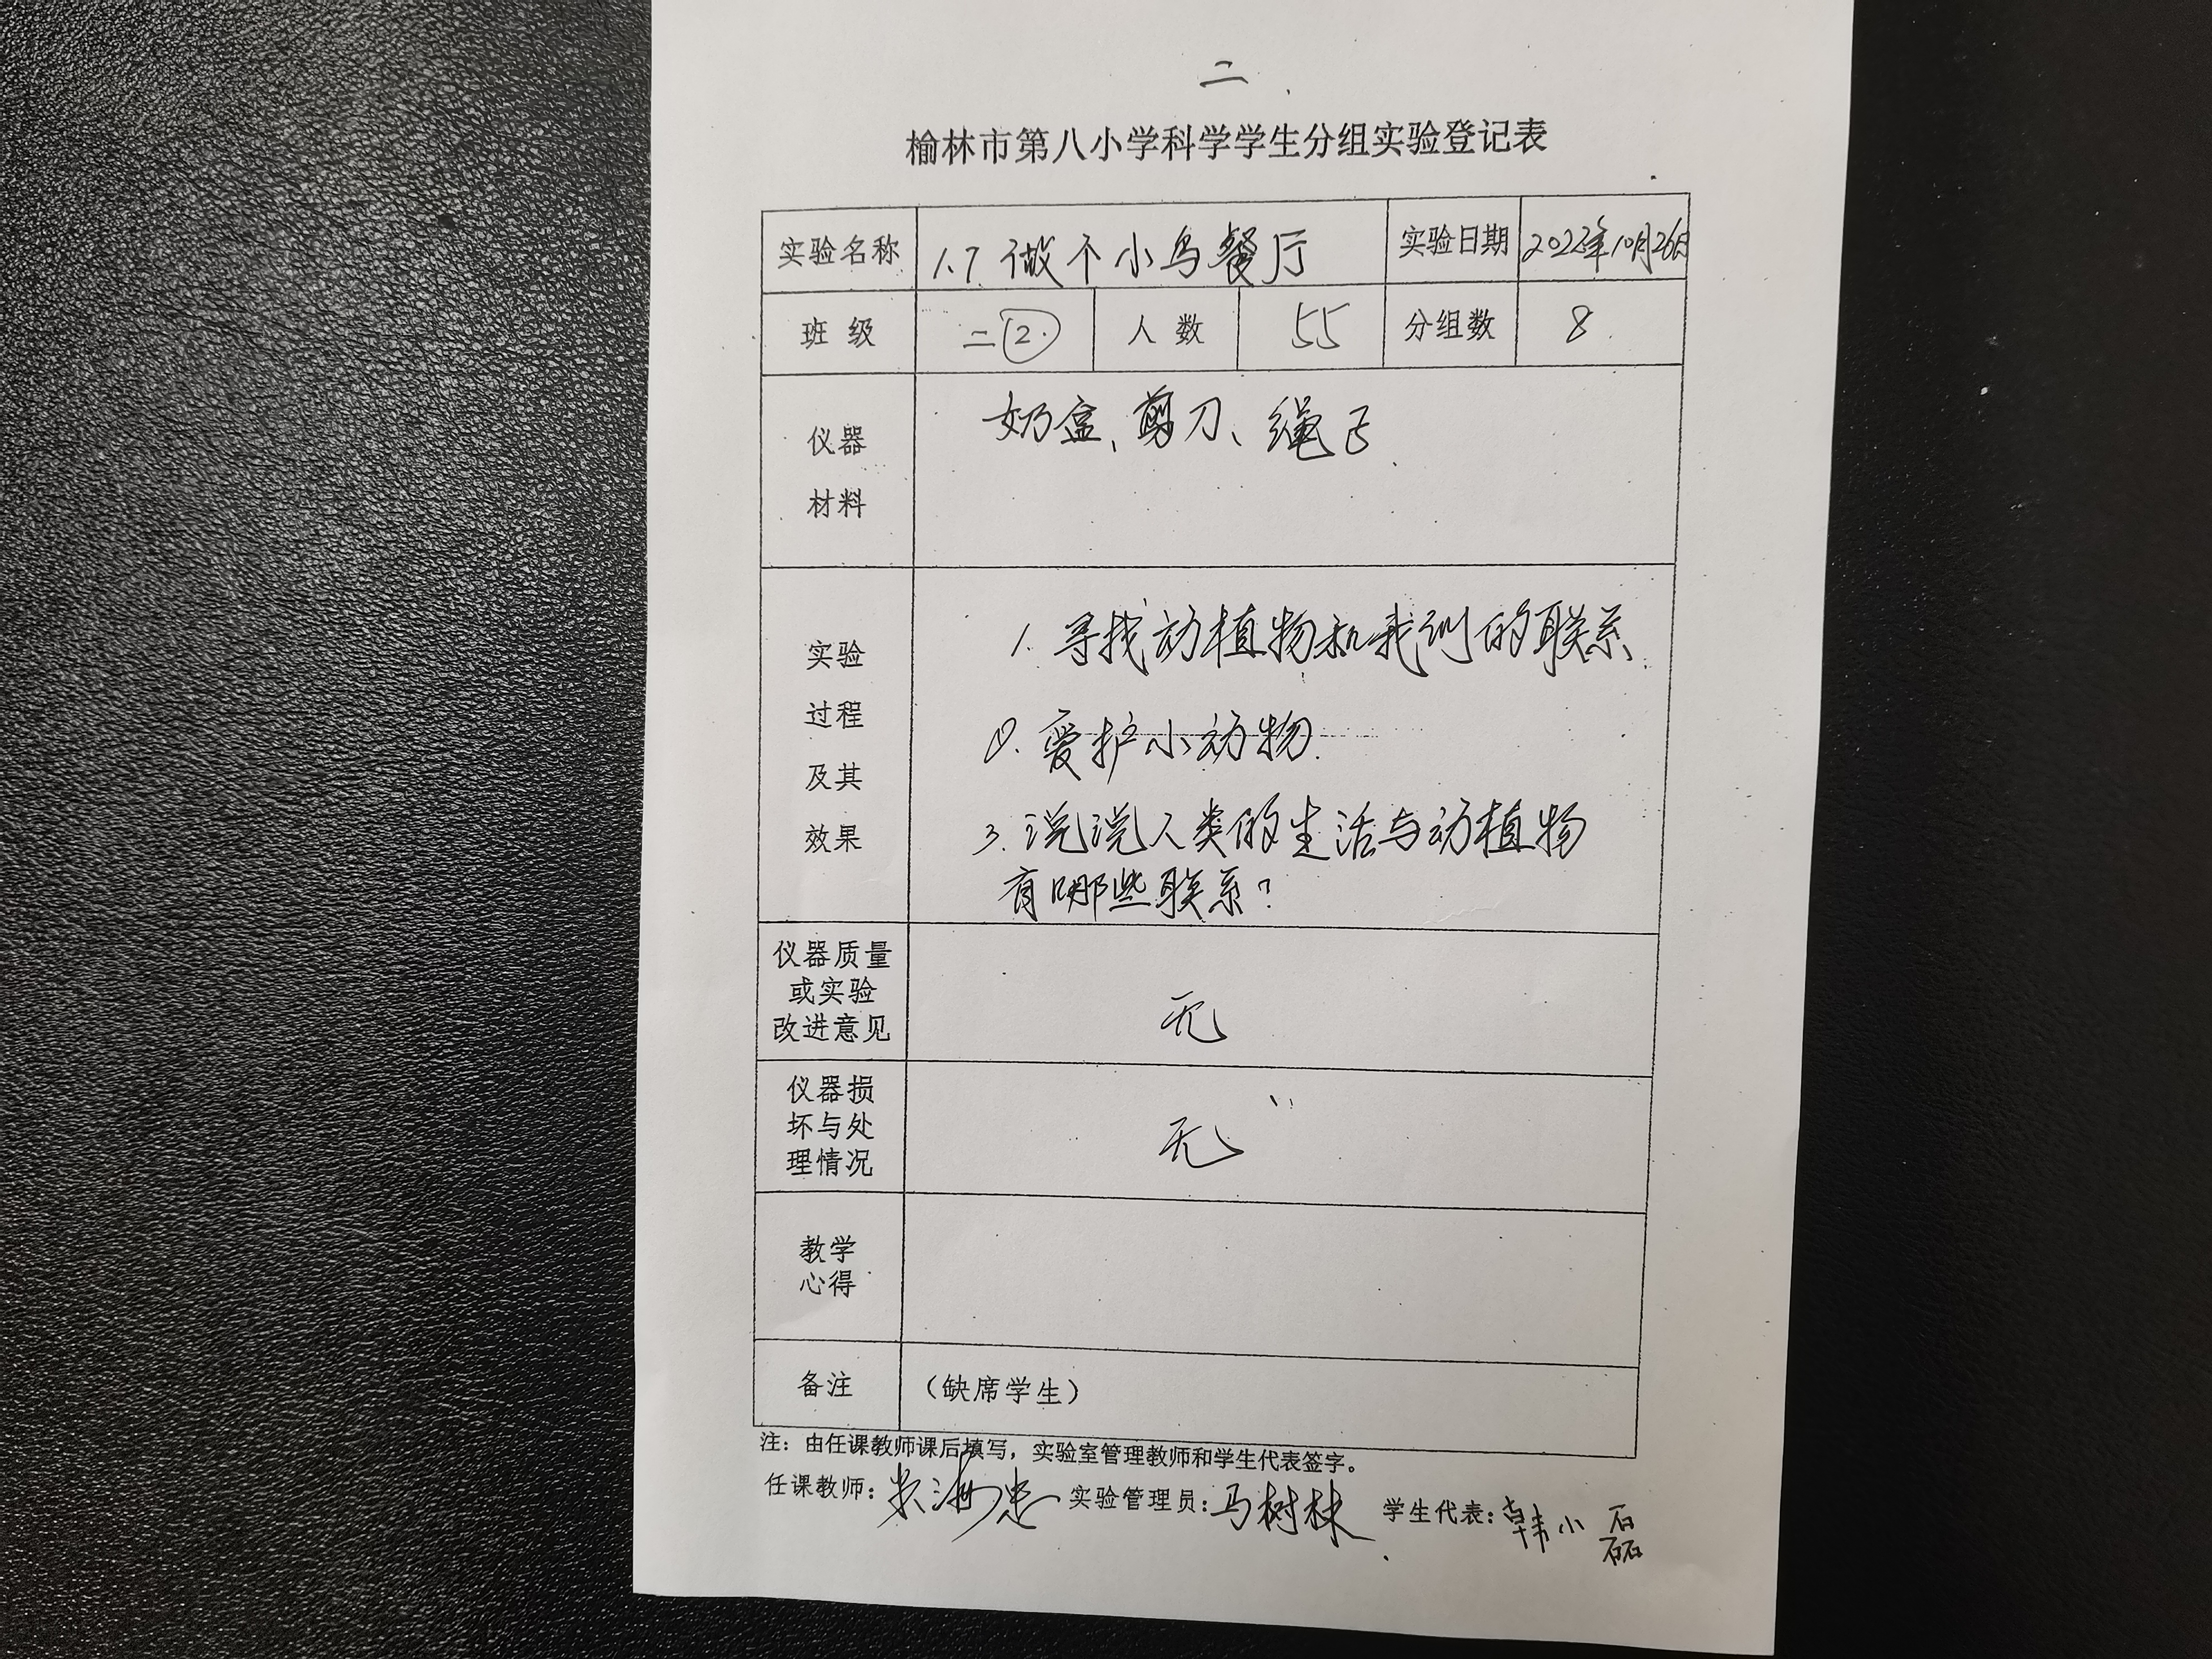 二
榆林市第八小学科学学生分组实验登记表
实验名称 1.7 做个小鸟餐厅 实验日期 2022年10月26日
班 级 二② 人 数 55 分组数 8
仪器
材料
奶盒、剪刀、绳子
实验
过程
及其
效果
1. 寻找动植物和我们的联系.
2. 爱护小动物.
3. 说说人类的生活与动植物
有哪些联系?
仪器质量
或实验
改进意见
无
仪器损
坏与处
理情况
无
教学
心得
备注 （缺席学生）
注：由任课教师课后填写，实验室管理教师和学生代表签字。
任课教师： 实验管理员：马树林 学生代表：韩小磊